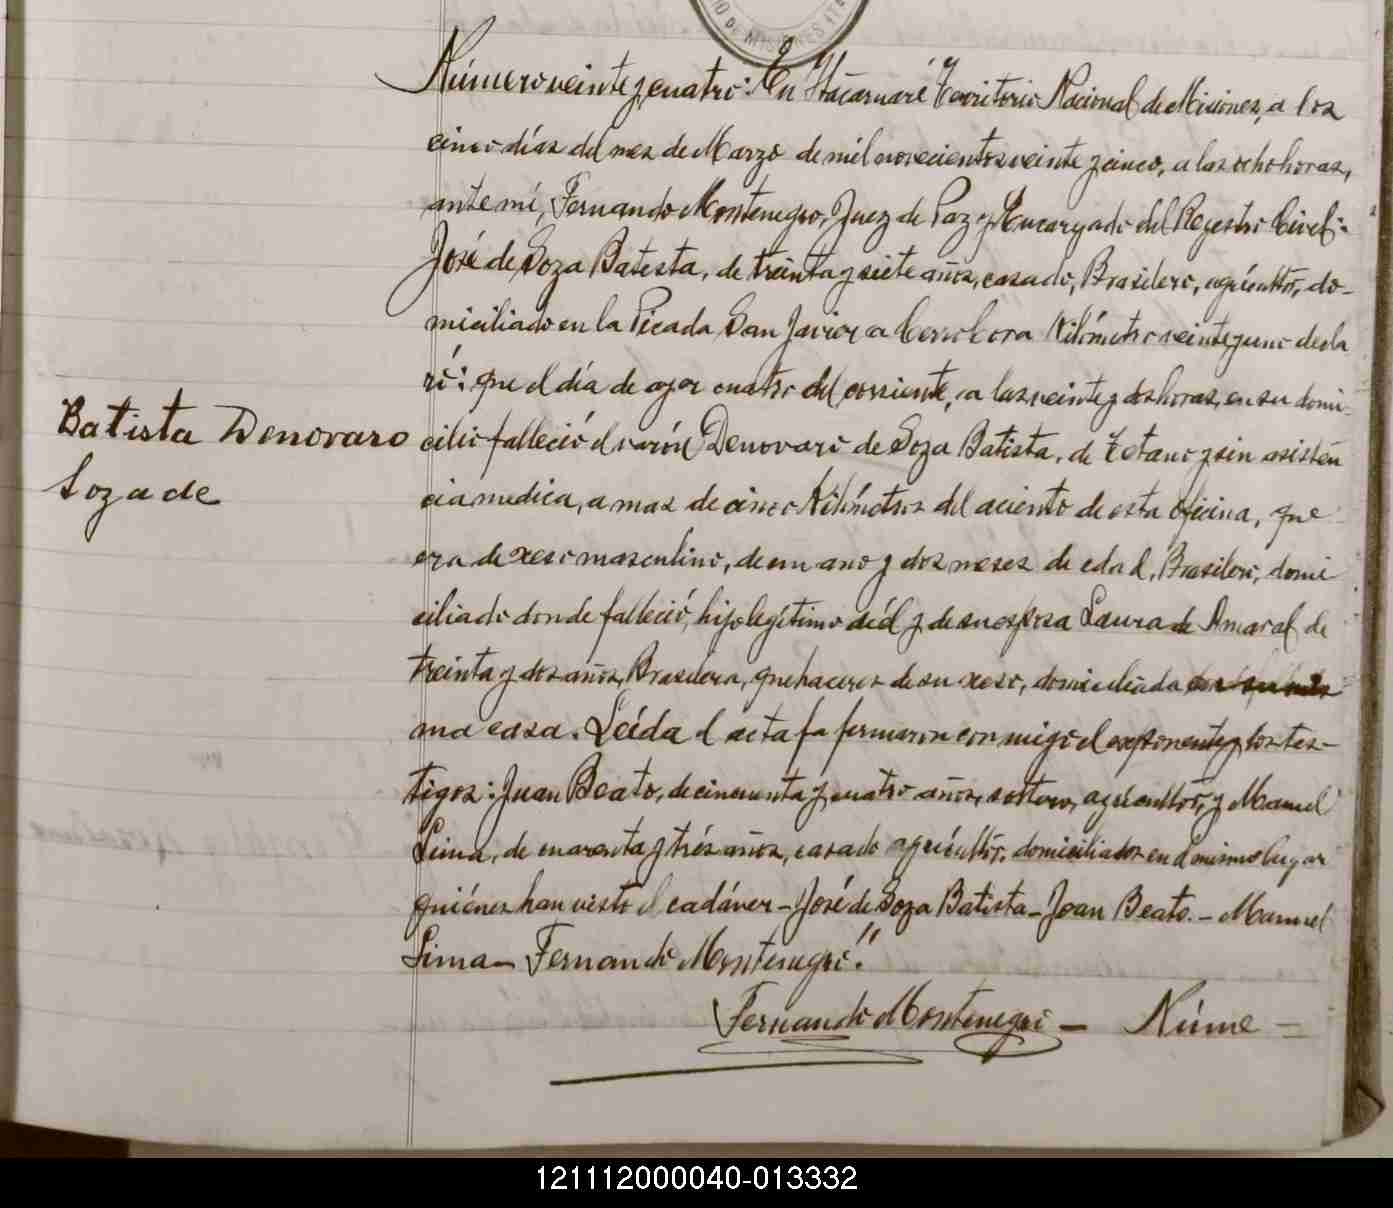 Número veinte y cuatro: En Itacaruaré Territorio Nacional de Misiones, a los
cinco días del mes de Marzo de mil novecientos veinte y cinco, a las ocho horas,
ante mí, Fernando Montenegro, Juez de Paz y Encargado del Regestro Civil:
José de Soza Batista, de treinta y siete años, casado, Brasilero, agricultor, do-
miciliado en la Picada San Javier a Cerro Cora Kilómetro veinte y uno decla
ró: que el día de ayer cuatro del corriente, a las veinte y dos horas, en su domi-
Batista Denovaro
cilio falleció el varón Denovaro de Soza Batista, de Tetano y sin asisten
Soza de
cia medica, a mas de cinco Kilómetros del aciento de esta oficina, que
era de xeso masculino, de un ano y dos meses de edad, Brasilero, domi
ciliado donde falleció, hijo legítimo de él y de su esposa Laura de Amaral de
treinta y dos años, Brasilera, quehaceres de su xeso, domiciliada en su mis
ma casa. Leída el acta la firmaron conmigo el exponente y los tes-
tigos: Juan Beato, de cincuenta y cuatro años, soltero, agricultor, y Manuel
Lima, de cuarenta y trés años, casado agricultor, domiciliados en el mismo lugar
quiénes han visto el cadáver - José de Soza Batista - Joan Beato. - Manuel
Lima - Fernando Montenegro."
Fernando Montenegro - Núme -
DE MISIONES
121112000040-013332